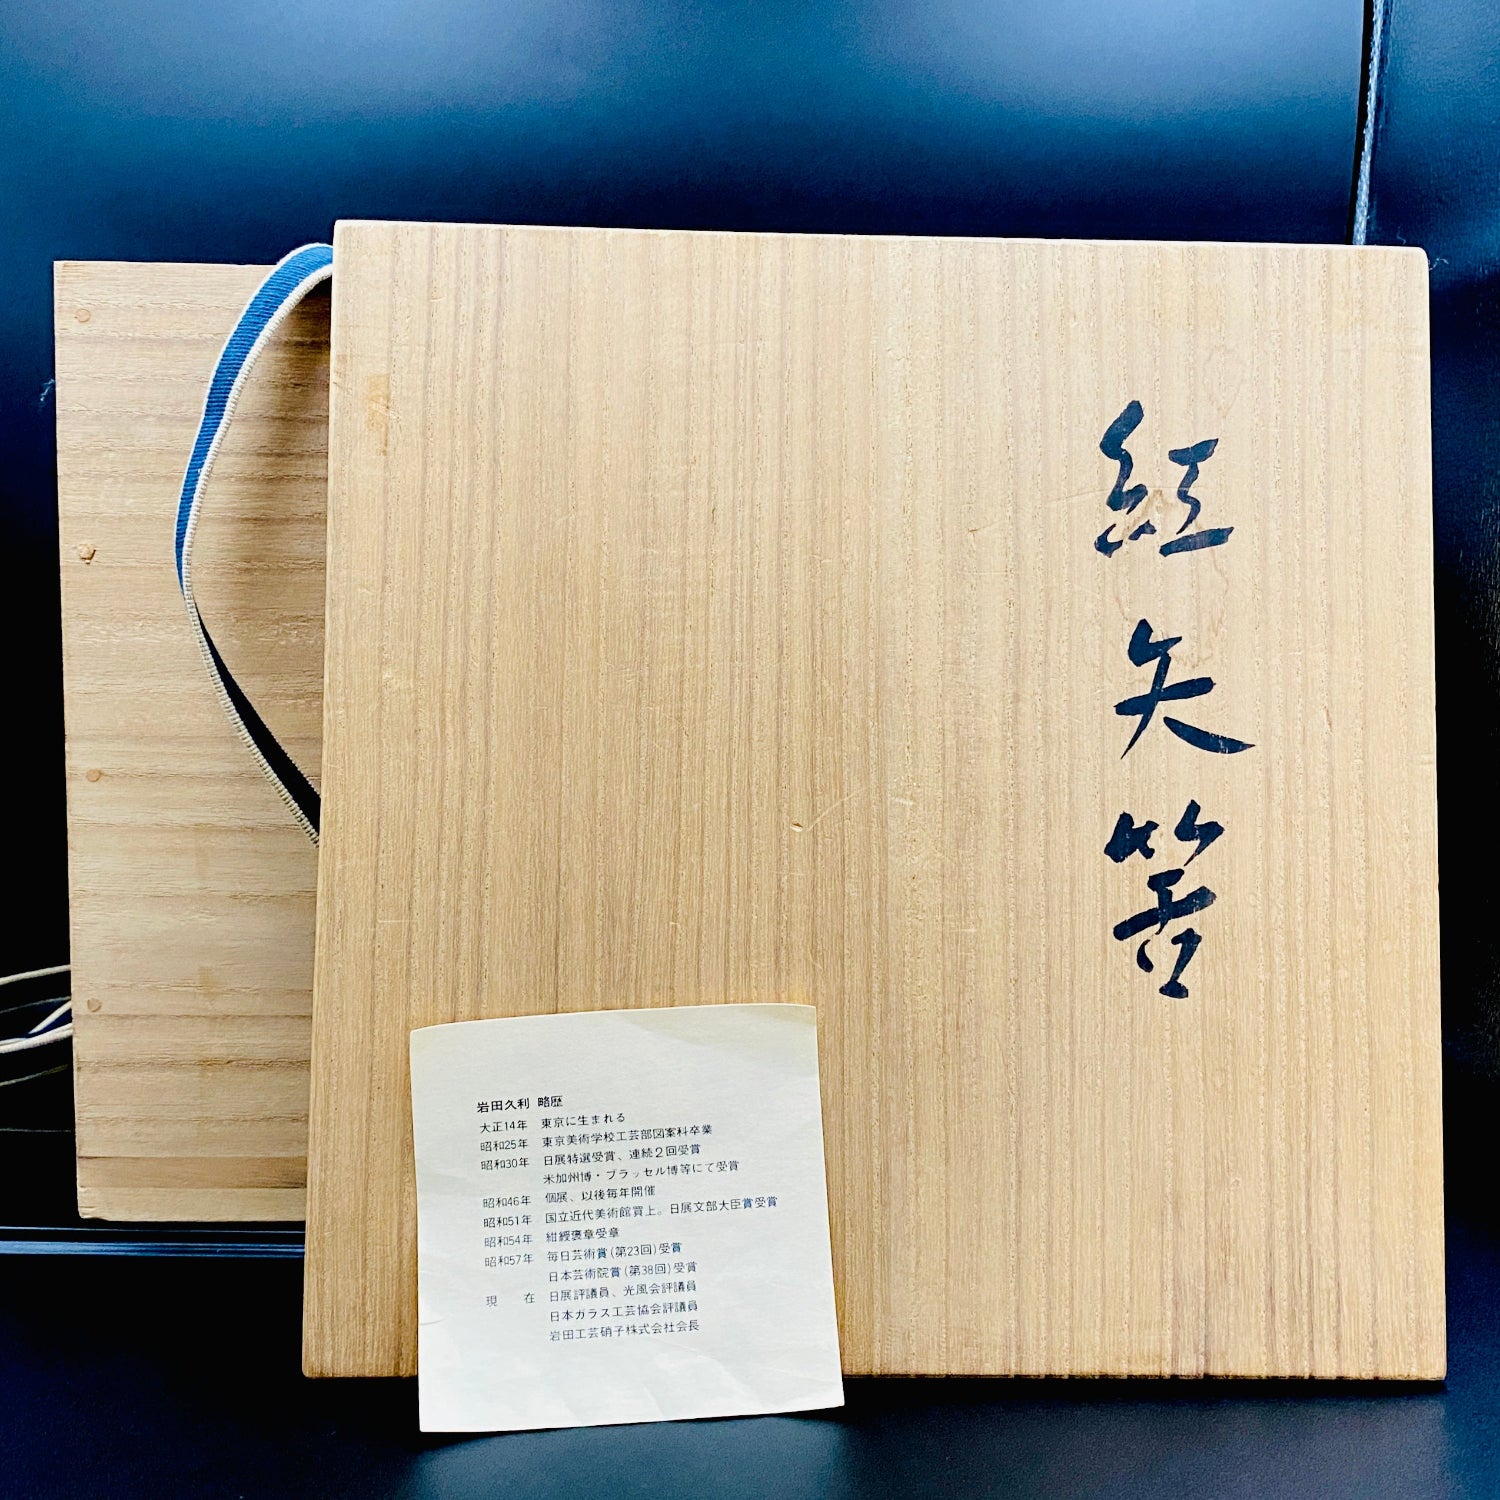 紅矢筈
岩田久利 略歴
大正14年 東京に生まれる
昭和25年 東京美術学校工芸部図案科卒業
昭和30年 日展特選受賞、連続2回受賞
米加州博・ブラッセル博等にて受賞
昭和46年 個展、以後毎年開催
昭和51年 国立近代美術館買上。日展文部大臣賞受賞
昭和54年 紺綬褒章受章
昭和57年 毎日芸術賞(第23回)受賞
日本芸術院賞(第38回)受賞
現 在 日展評議員、光風会評議員
日本ガラス工芸協会評議員
岩田工芸硝子株式会社会長